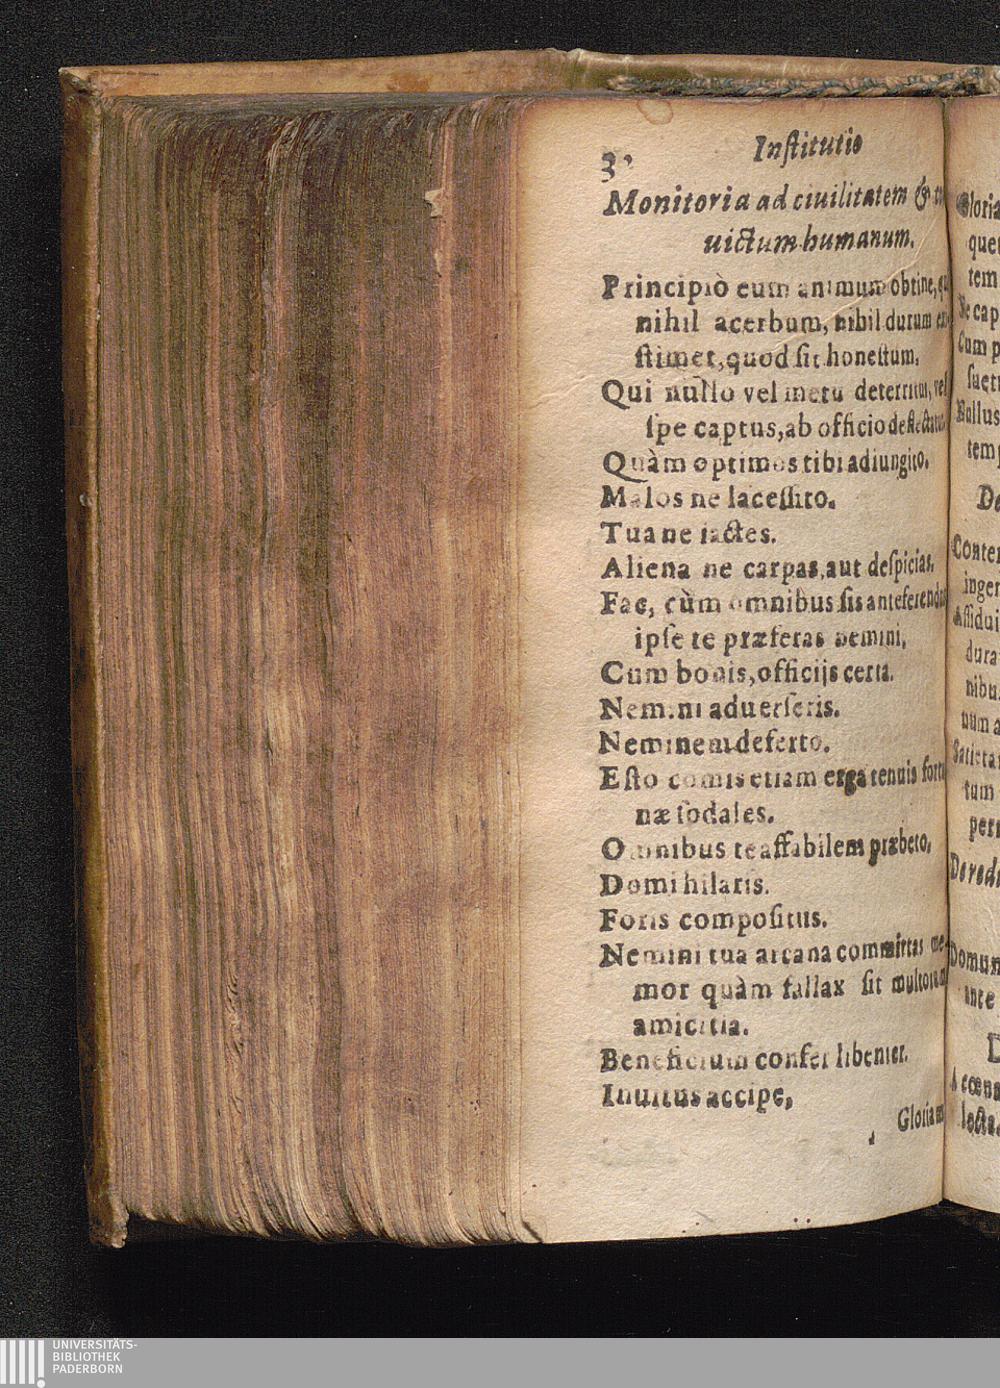 Institutio
Monitoria ad ciuilitatem &
uictum humanum.
Principiò eum animum obtine,
nihil acerbum, nihil durum
ſtimet, quod ſit honeſtum.
Qui nullo vel metu deterritus, vel
ſpe captus, ab officio deflectatur.
Quàm optimos tibi adiungito.
Malos ne laceſſito.
Tua ne iactes.
Aliena ne carpas, aut deſpicias.
Fac, cùm omnibus ſis anteferendus
ipſe te præferas nemini,
Cum bonis, officijs certa.
Nemini aduerſeris.
Neminem deſerto.
Eſto comis etiam erga tenuis fortu
næ ſodales.
Omnibus te affabilem præbeto.
Domi hilaris.
Foris compoſitus.
Nemini tua arcana committas me-
mor quàm fallax ſit multorum
amicitia.
Beneficium confer libenter.
Inuitus accipe,
Gloriam
Gloria
que
tem
Ne cap
Cum p
ſuet
Nullus
temp
De
Conte
inger
Aſſidui
dura
nibu
num a
Satieta
tum
per
De redi
Domum
ante
A cœna
lecta.
UNIVERSITÄTS-
BIBLIOTHEK
PADERBORN